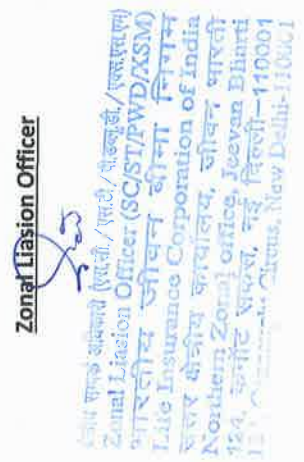 Zonal Liasion Officer
संपर्क अधिकारी (एस.सी./एस.टी./पी.डब्ल्यू.डी./एक्स.एस.एम)
Zonal Liasion Officer (SC/ST/PWD/XSM)
भारतीय जीवन बीमा निगम
Life Insurance Corporation of India
उत्तर क्षेत्रीय कार्यालय, जीवन भारती
Northern Zonal office, Jeevan Bharti
124, कनॉट सर्कस, नई दिल्ली-110001
Circus, New Delhi-110001